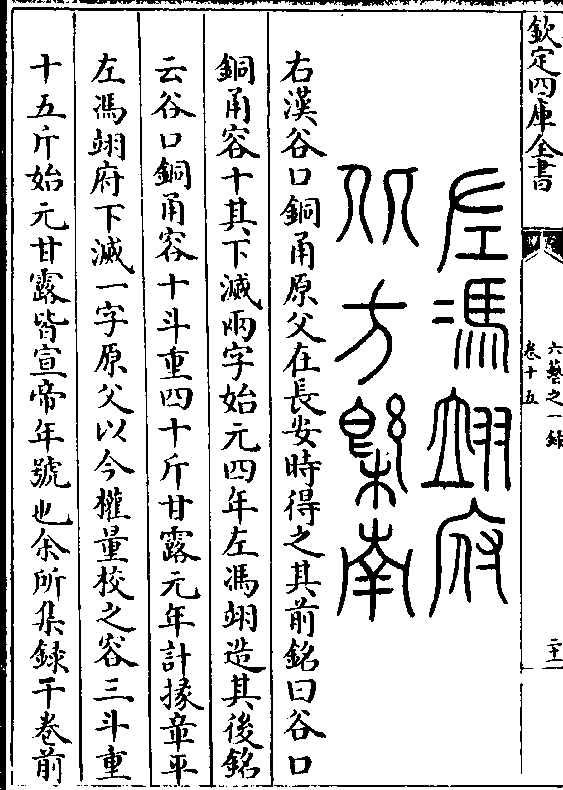 欽定四庫全書
六藝之一録
卷十五
左馮翊府
方槩南
右漢谷口銅甬原父在長安時得之其前銘曰谷口
銅甬容十其下滅兩字始元四年左馮翊造其後銘
云谷口銅甬容十斗重四十斤甘露元年計掾章平
左馮翊府下滅一字原父以今權量校之容三斗重
十五斤始元甘露皆宣帝年號也余所集録千卷前